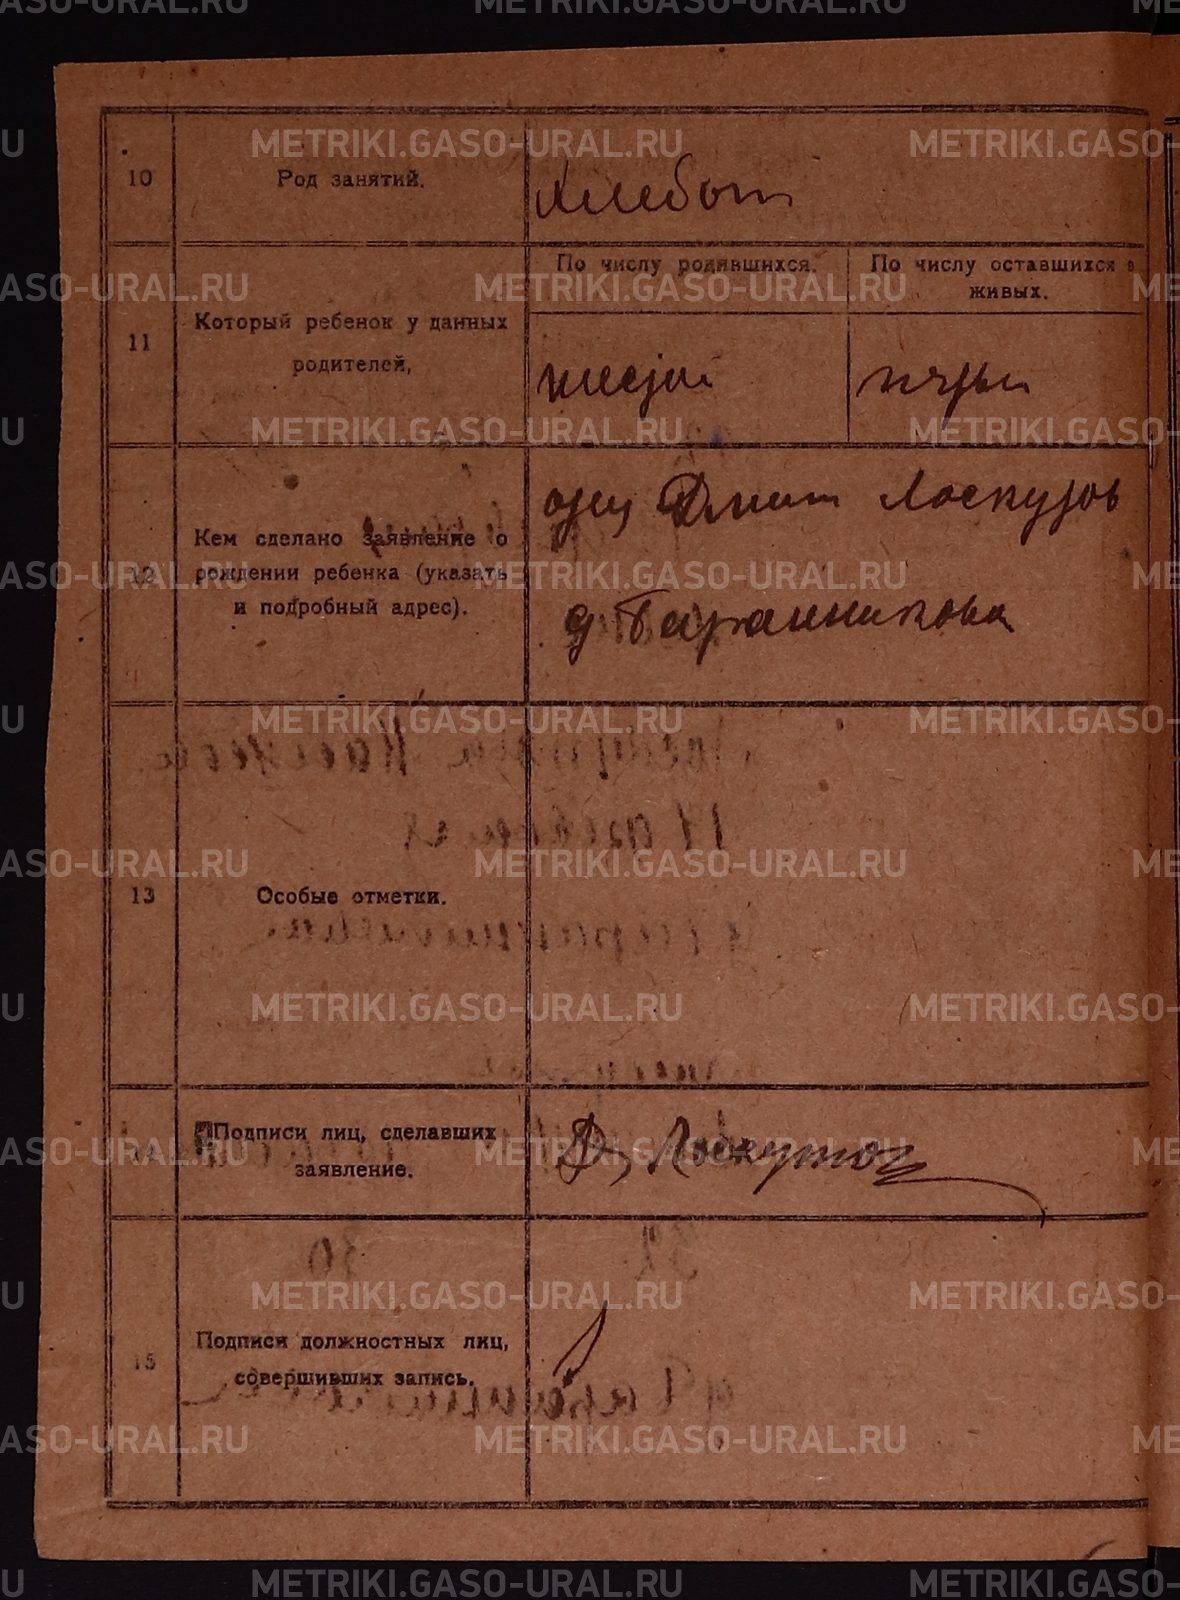 10
Род занятий.
Хлебоп
11
Который ребенок у данных
родителей,
По числу родившихся.
По числу оставшихся в
живых.
шестой
пятый
12
Кем сделано заявление о
рождении ребенка (указать
и подробный адрес).
отец Дмит Лоскутов
д Баранникова
13
Особые отметки.
14
Подписи лиц, сделавших
заявление.
Д Лоскутов
15
Подписи должностных лиц,
совершивших запись.
METRIKI.GASO-URAL.RU